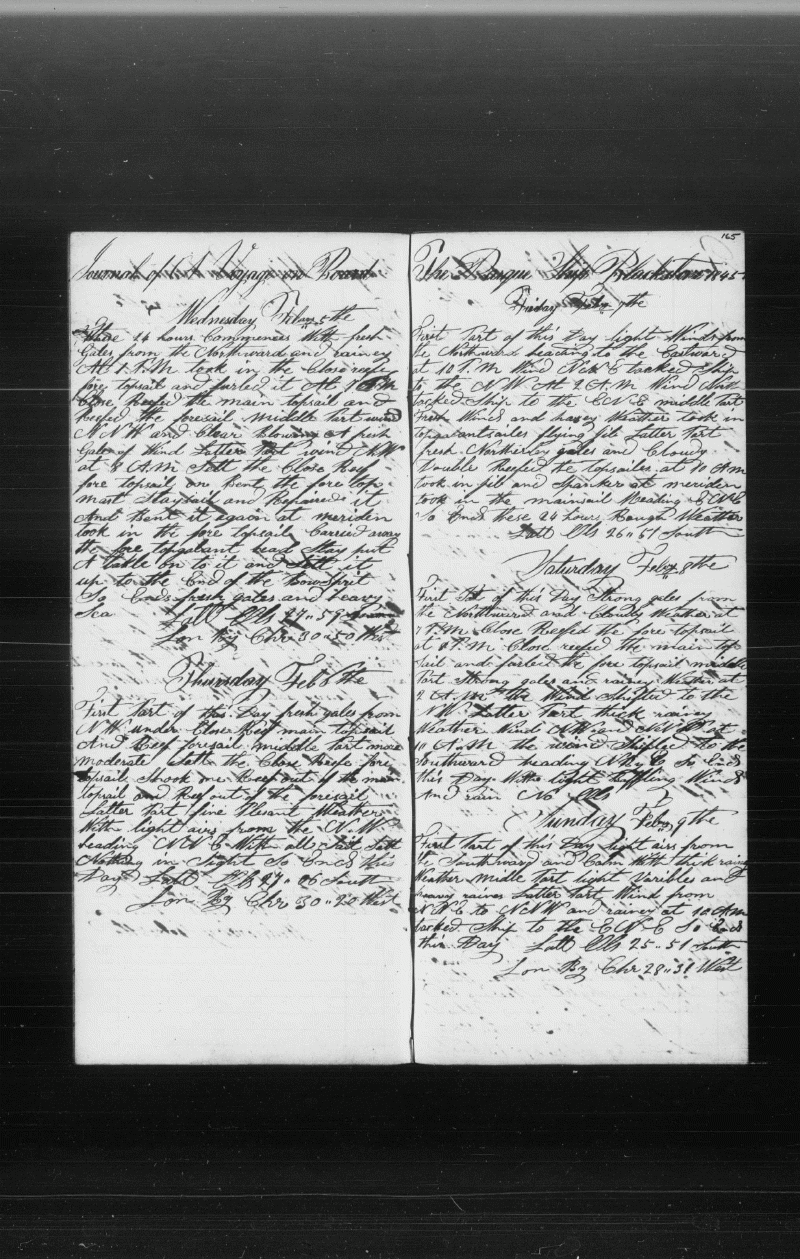 Journal of A Voyage on Board
Wednesday Feby 5 the
These 24 hours Commences With fresh
Gales from the Northward and rainey
At 1 P.M took in the Close reefe
fore topsail and furled it At P.M
Close Reefed the main topsail and
Reefed the foresail middle Part wind
N N W and Clear Blowing A fresh
Gale of Wind Latter Part wind N.W
at 8 A.M Sett the Close Reef
fore topsail un bent the fore top
mast Staysail and Repaired it
And Bent it again at meriden
took in the fore topsail Carried away
the fore topgalant head Stay put
A table on to it and Sett it
up to the End of the Bow Sprit
So Ends fresh gales and heavy
Sea Latt Obs 27"59
Lon By Chr 30"50 West
Thursday Feb 6 the
First Part of this Day fresh gales from
N W under Close Reef main topsail
And Reef foresail middle Part more
moderate Sett the Close Reefe fore
topsail Shook one Reef out of the main
topsail and Reef out of the foresail
Latter Part fine Plesant Weather
With light airs from the N.W
heading N E With all Sail Sett
Nothing in Sight So Ends this
Day Latt Obs 27"06 South
Lon By Chr 30"20 West
165
The Barque Ship Blackstone 1845
Friday Feby 7 the
First Part of this Day light Winds from
the Northward heading to the Eastward
at 10 P.M Wind N E tacked Ship
to the N W At 2 A.M Wind NW
tacked Ship to the E N E middle Part
Fresh Winds and hasey Weather took in
topgalantsailes flying jib Latter Part
fresh Northerley gales and Cloudy
Double Reefed the topsailes at 10 AM
took in jib and Spanker at meriden
took in the mainsail Heading E N E
So Ends these 24 hours Rough Weather
Latt Obs 26"51 South
Saturday Feby 8 the
First Part of this Day Strong gales from
the Northward and Cloudy Weather at
7 P.M Close Reefed the fore topsail
at 8 P.M Close reefed the main top
sail and furled the fore topsail middle
Part Strong gales and rainey Weather at
2 A.M the Wind Shifted to the
NW Latter Part thick rainey
Weather Wind NW and At
10 A.M the wind Shifted to the
Southward heading N E So Ends
this Day With light Baffling Winds
And rain No Obs
Sunday Feby 9 the
First Part of this Day light airs from
the Southward and Calm With thick rainey
Weather Midle Part light Varibles and
heavy raines Latter Part Wind from
N N E to N W and rainey at 10 A.M
tacked Ship to the E N E So Ends
this Day Latt Obs 25"51 South
Lon By Chr 28"31 West